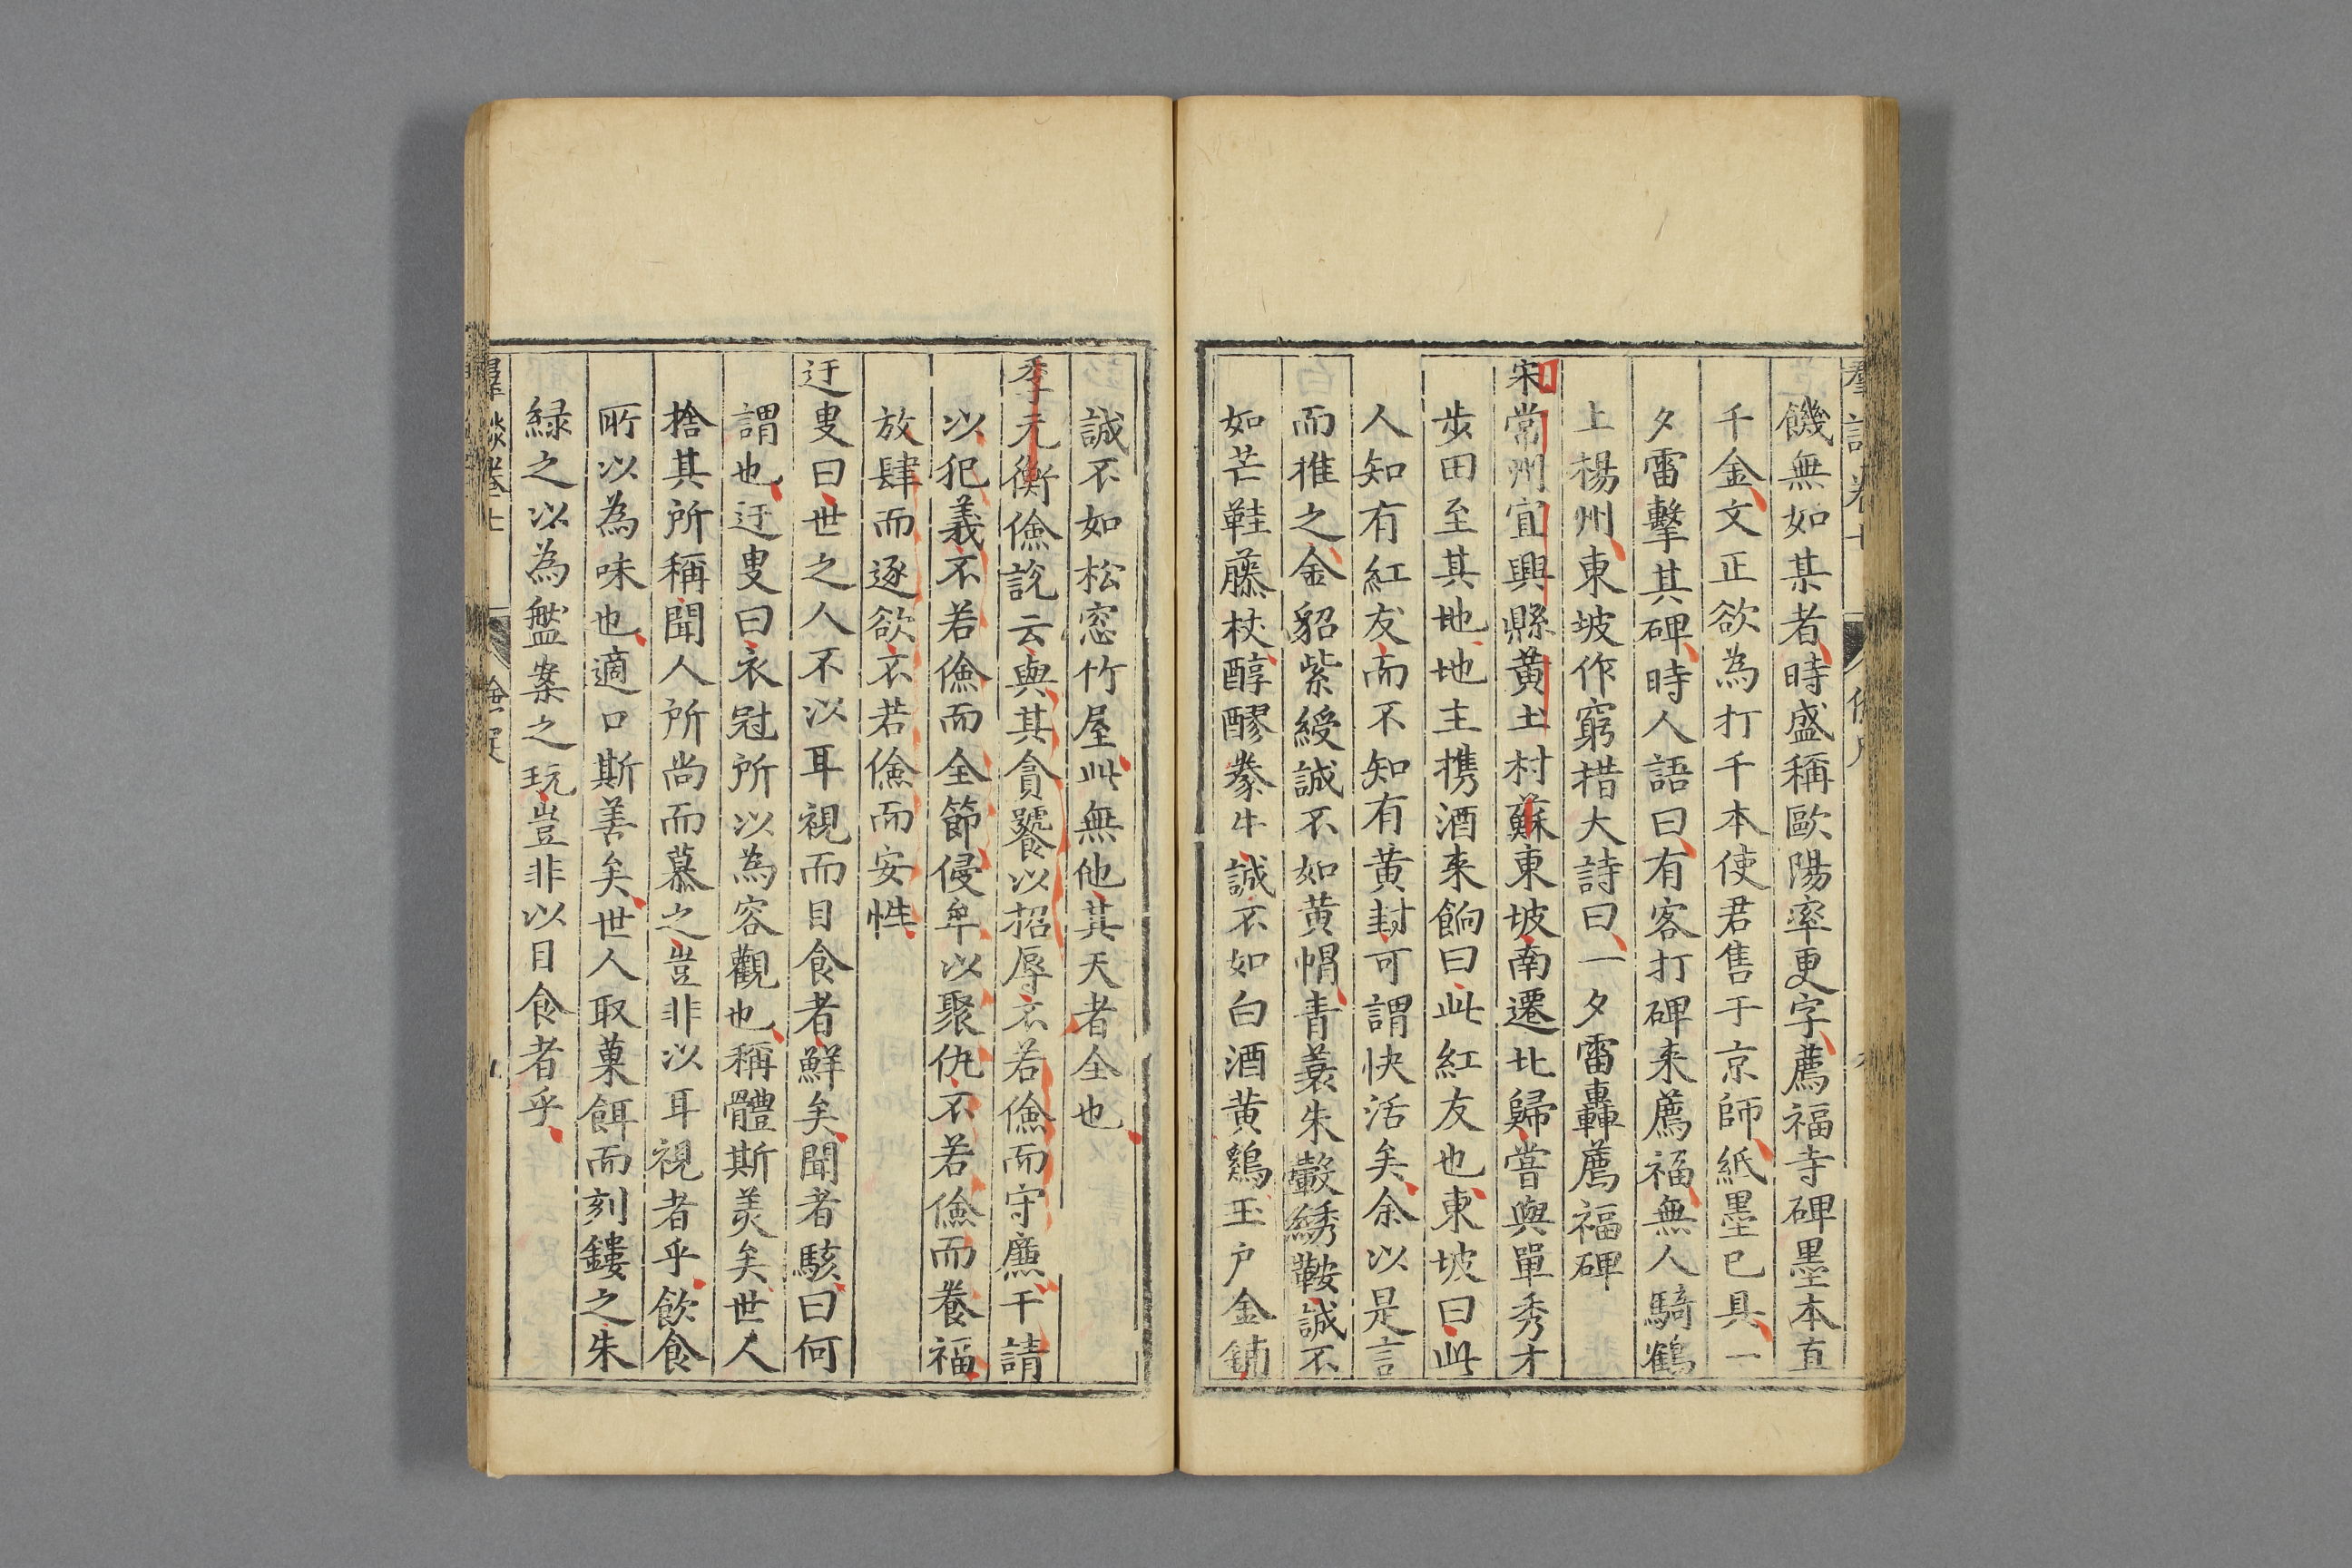 饑無如某者時盛稱歐陽率更字薦福寺碑墨本直
千金文正欲為打千本使君售于京師紙墨已具一
夕雷擊其碑時人語曰有客打碑来薦福無人騎鶴
上楊州東坡作窮措大詩曰一夕雷轟薦福碑
宋常州宜興縣黄土村蘇東坡南遷北歸嘗與單秀才
步田至其地地主携酒来餉曰此紅友也東坡曰此
人知有紅友而不知有黄封可謂快活矣余以是言
而推之金貂紫綬誠不如黄帽青蓑朱轂綉鞍誠不
如芒鞋藤杖醇醪豢牛誠不如白酒黄鷄玉户金鋪
誠不如松窓竹屋此無他其天者全也
季元衡儉説云與其貪饕以招辱不若儉而守廉干請
以犯義不若儉而全節侵牟以聚仇不若儉而養福
放肆而逐欲不若儉而安性
迂叟曰世之人不以耳視而目食者鮮矣聞者駭曰何
謂也迂叟曰衣冠所以為容觀也稱體斯羙矣世人
捨其所稱聞人所尚而慕之豈非以耳視者乎飲食
所以為味也適口斯善矣世人取菓餌而刻鏤之朱
緑之以為盤案之玩豈非以目食者乎